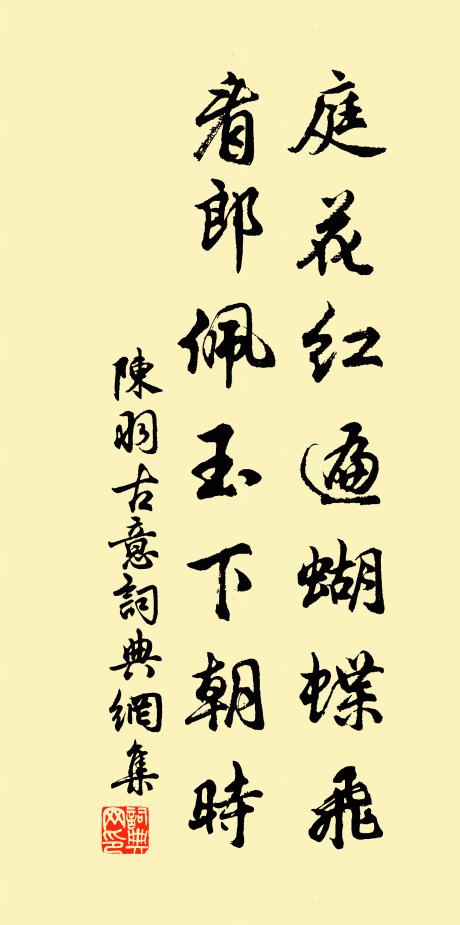 庭花红遍蝴蝶飛
看郎佩玉下朝時
陳羽古意詞典網集
詞典网印